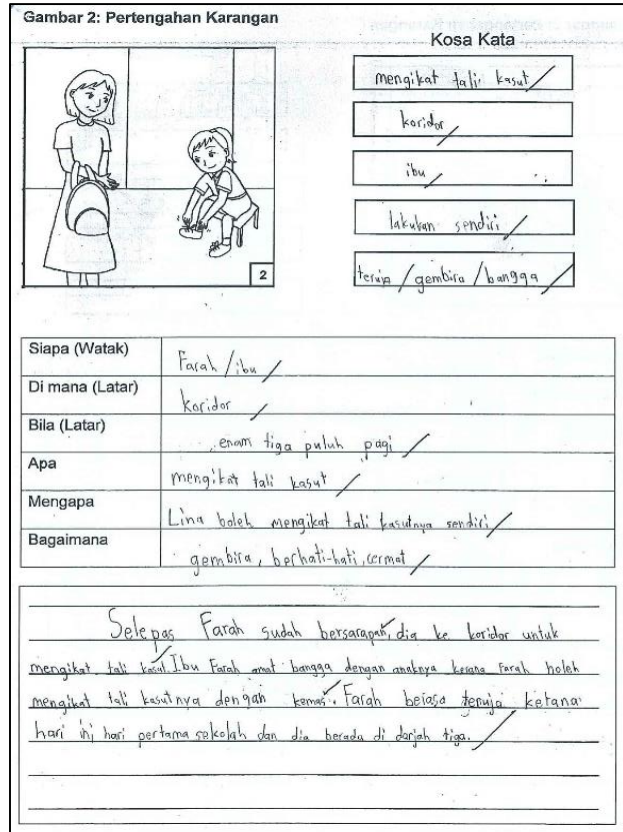 Gambar 2: Pertengahan Karangan
Kosa Kata
mengikat tali kasut
koridor
ibu
lakukan sendiri
teruja / gembira / bangga
2
Siapa (Watak)
Farah / ibu
Di mana (Latar)
koridor
Bila (Latar)
enam tiga puluh pagi
Apa
mengikat tali kasut
Mengapa
Lina boleh mengikat tali kasutnya sendiri
Bagaimana
gembira, berhati-hati, cermat
Selepas Farah sudah bersarapan, dia ke koridor untuk
mengikat tali kasut. Ibu Farah amat bangga dengan anaknya kerana Farah boleh
mengikat tali kasutnya dengan kemas. Farah berasa teruja kerana
hari ini hari pertama sekolah dan dia berada di darjah tiga.